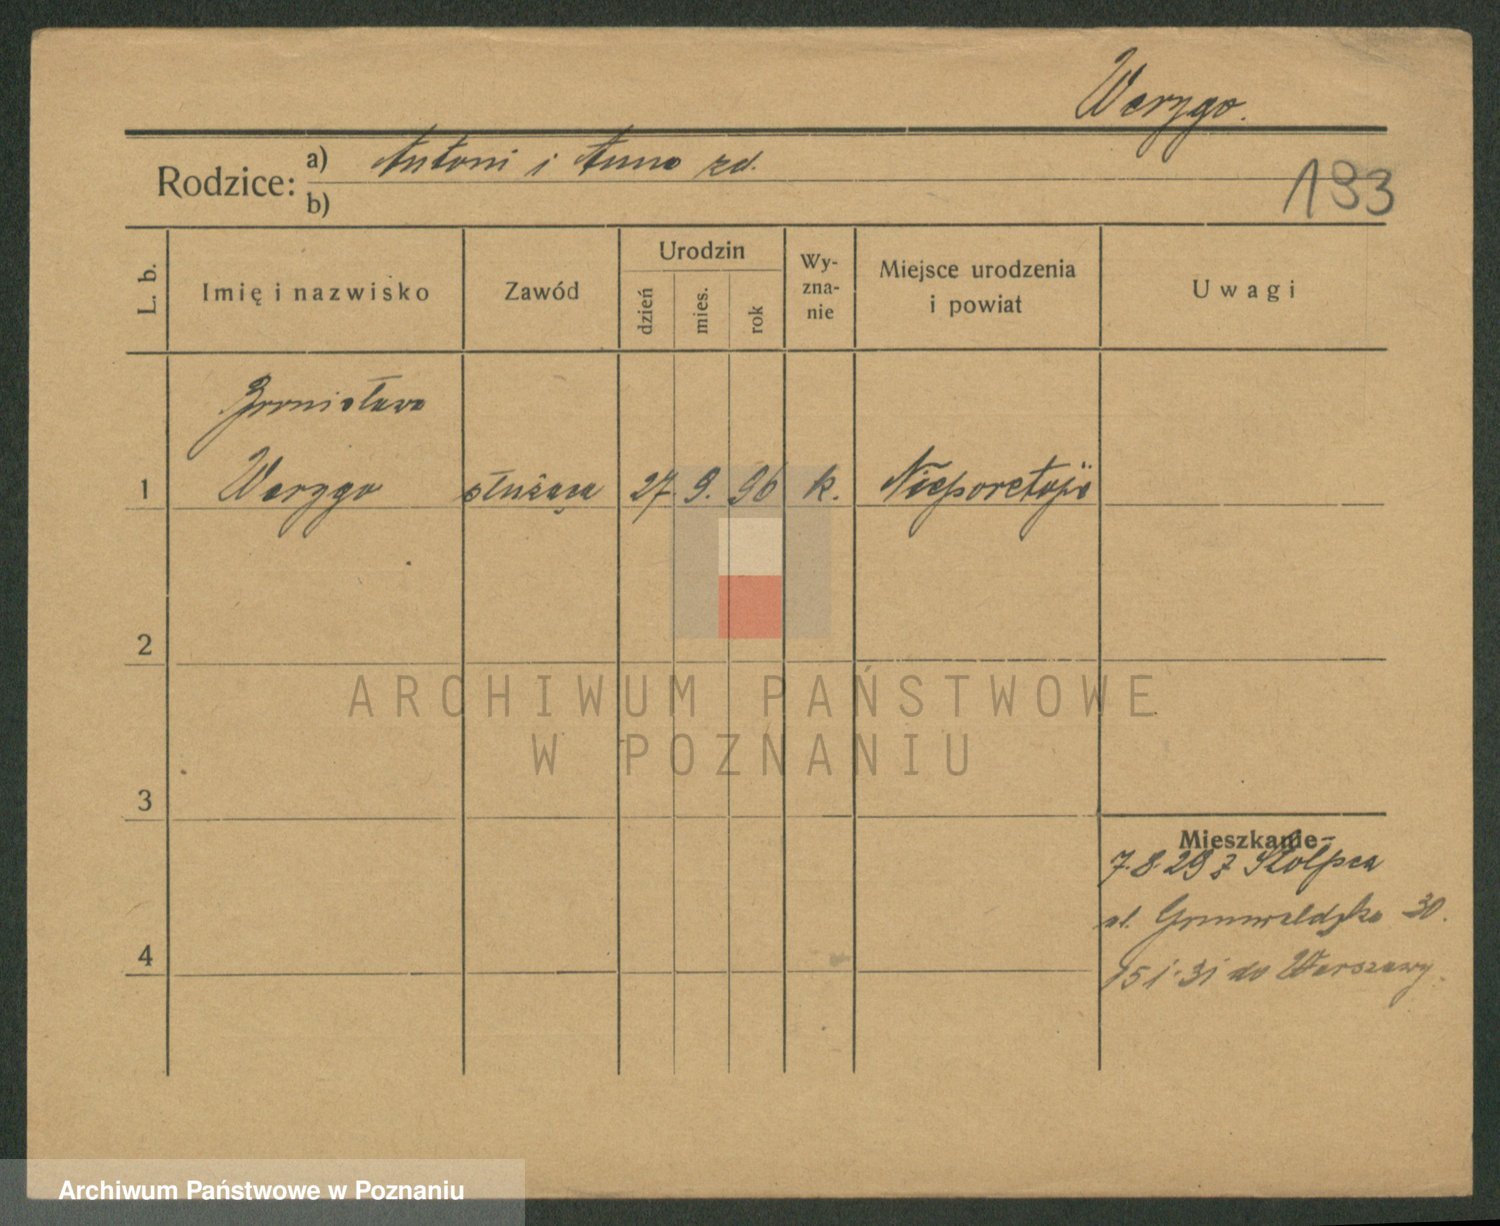 Werygo.
Rodzice: a) Antoni i Anna zd.
b)
193
L. b.
Imię i nazwisko
Zawód
Urodzin
dzień
mies.
rok
Wy-
zna-
nie
Miejsce urodzenia
i powiat
Uwagi
Bronisława
1 Werygo służąca 27. 9. 96 k.
2
3
4
Mieszkanie
7.8.29 z Stolpca
ul. Grunwaldzka 30.
15 1. 31 do Warszawy.
ARCHIWUM PAŃSTWOWE
W POZNANIU
Archiwum Państwowe w Poznaniu